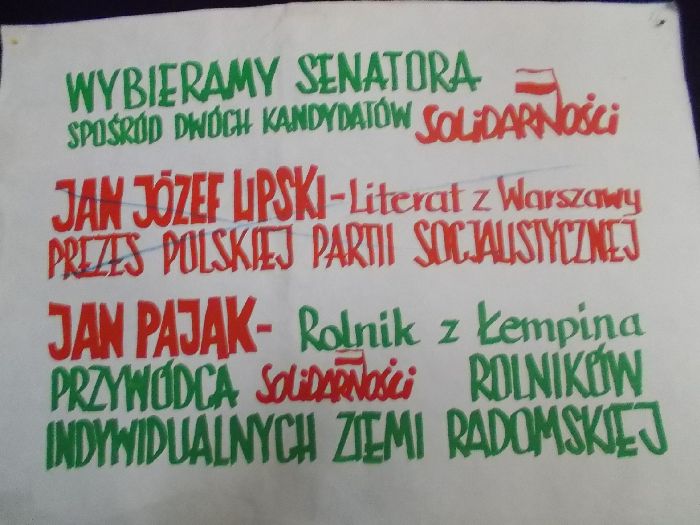 WYBIERAMY SENATORA
SPOŚRÓD DWÓCH KANDYDATÓW SOLIDARNOŚCI
JAN JÓZEF LIPSKI - Literat z Warszawy
PREZES POLSKIEJ PARTII SOCJALISTYCZNEJ
JAN PAJĄK - Rolnik z Łempina
PRZYWÓDCA SOLIDARNOŚCI ROLNIKÓW
INDYWIDUALNYCH ZIEMI RADOMSKIEJ